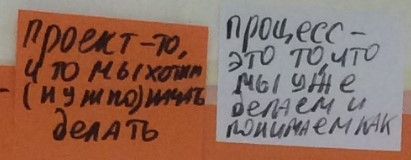 проект-то,
что мы хотим
(нужно) начать
делать
процесс-
это то, что
мы уже
делаем и
понимаем как